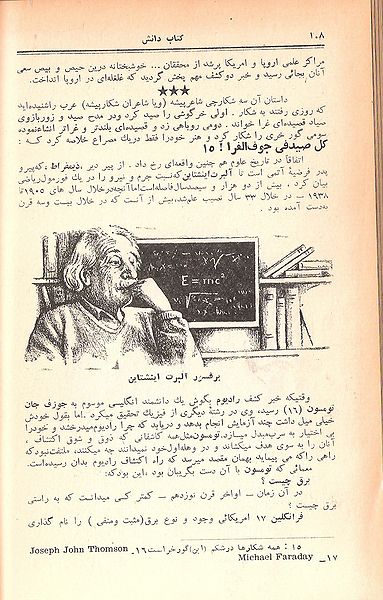 ۱۰۸
کتاب دانش
مراکز علمی اروپا و امریکا پرشد از محققان ... خوشبختانه درین حیص و بیص سعی
آنان بجائی رسید و خبر دوکشف مهم پخش گردید که غلغله‌ای در اروپا انداخت.
★★★
داستان آن سه شکارچی شاعرپیشه (ویا شاعران شکارپیشه) عرب راشنیده‌اید
که روزی رفتند به شکار . اولی خرگوشی را صید کرد ودر مدح صید و زوربازوی
صیاد قصیده‌ای غرا خواند . دومی روباهی زد و قصیده‌ای بلندتر و غراتر انشاءنموده
سومی گور خری را شکار کرد و هنر خودرا فقط دریك مصراع خلاصه کرد که :
کل صیدفی جوف‌الفرا ! ۱۵
اتفاقاً در تاریخ علوم هم چنین واقعه‌ای رخ داد . از پیر دیر ،ذیمقراط ،که‌پیرو
پدر فرضیهٔ اتمی است تا آلبرت اینشتاین‌که‌نسبت جرم و نیرو را در یك فورمول‌ریاضی
بیان کرد . بیش از دو هزار و سیصدسال‌فاصله‌است‌اماآنچه‌درخلال سال های ۱۹۰۵تا
۱۹۳۸ – در خلال ۳۳ سال نصیب علم‌شد، بیش از آنست که در خلال بیست وسه قرن
بدست آمده بود .
E=mc²
پرفسور آلبرت اینشتاین
وقتیکه خبر کشف رادیوم بگوش یك دانشمند انگلیسی موسوم به جوزف جان
تومسون (۱۶) رسید، وی در رشتهٔ دیگری از فیزیك تحقیق میکرد .اما بقول خودش
خیلی میل داشت چند آزمایش انجام بدهد و دریابد که چرا رادیوم‌میدرخشد و خودرا
بی اختیار به سرب‌مبدل میسازد.تومسون‌مثل‌همه کاشفانی که ذوق و شوق اکتشاف ،
آنان را به سوی هدف میکشاند و در وهله‌اول‌خود نمیدانند چه میکنند، ملتفت‌نبودکه
راهی راکه می پیماید بهمان مقصد میرسد که راه اکتشاف رادیوم بدان رسیده‌است.
معمائی که تومسون با آن دست بگریبان بود ،این بودکه:
برق چیست ؟
در آن زمان – اواخر قرن نوزدهم – کمتر کسی میدانست که به راستی
برق چیست ؟
فرانکلین ۱۷ امریکائی وجود و نوع برق(مثبت ومنفی ) را نام گذاری
۱۵ : همه شکارها درشکم (این)گورخراست ۱۶_ Joseph John Thomson
۱۷_ Michael Faraday